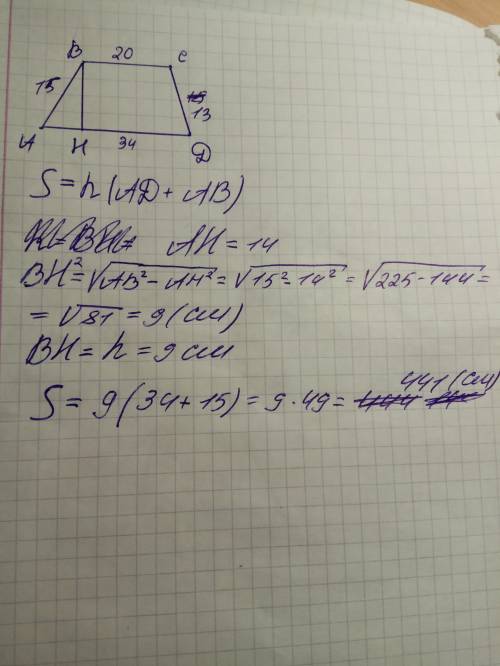 B 20 C
15
15 13
A H 34 D
S = h(AD + AB)
AH = 14
BH² = √AB² - AH² = √15² - 14² = √225 - 144 =
= √81 = 9 (см)
BH = h = 9 см
441 (см)
S = 9(34 + 15) = 9 · 49 =